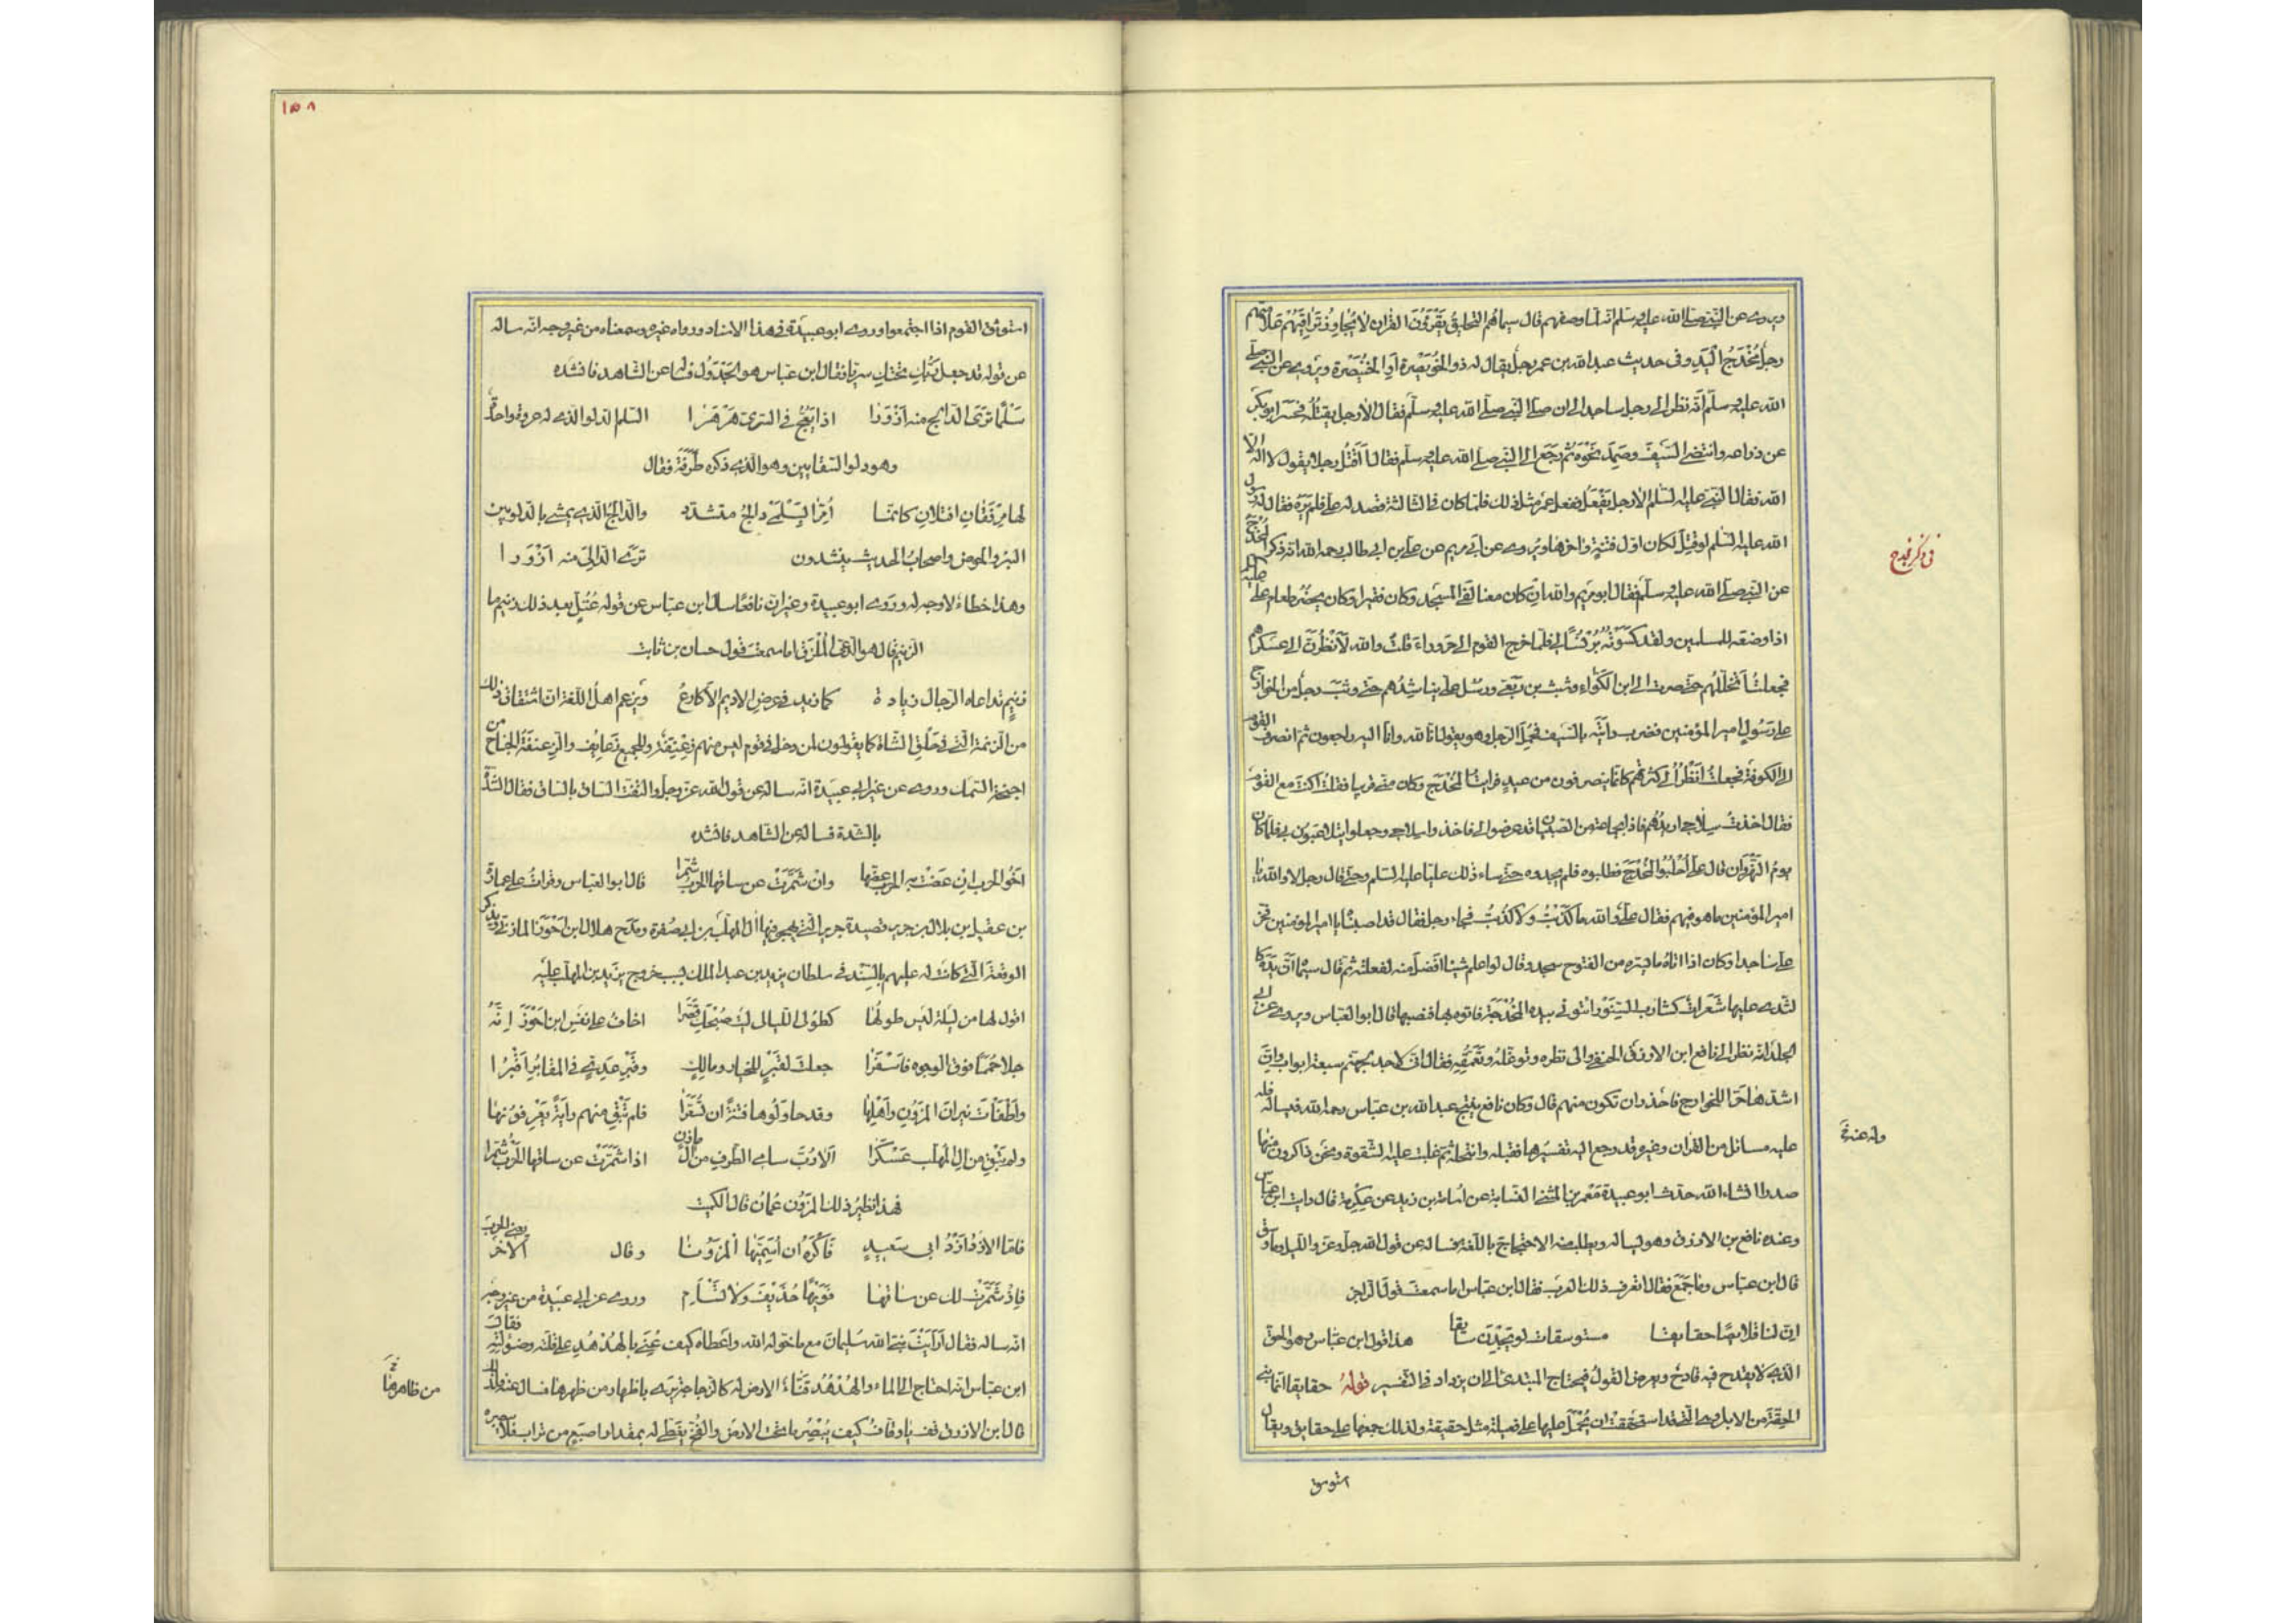 ويروى عن النبي صلى الله عليه وسلم انه لما وصفهم قال سيماهم التحليق يَقْرَؤُنَ القرآن لا يُجاوِزُ تَراقِيَهُم علامتهم
رجل مُخْدَجُ اليَدِ وفى حديث عبد الله بن عمر رجل يقال له ذو الخُوَيْصِرة اَوِ الخُنَيْصِرة ويروى عن النبي صلى
الله عليه وسلم أنّه نظر الى رجل ساجد الى ان صلى النبي صلى الله عليه وسلم فقال الا رجل يقتُلُه فحسر ابو بكر
عن ذراعه وانتضى السَّيفَ وصَمَدَ نَحْوَه ثم رَجَع الى النبي صلى الله عليه وسلم فقال أَقْتُلُ رجلا يقول لا اله الا
الله فقال النبي عليه السلم الا رجل يَفْعَل ففعل عمر مثل ذلك فلما كان فى الثالثة قصد له علي فلم يَرَه فقال له رسول
الله عليه السلم لو قُتِلَ لكان اول فتنة واخرها ويروى عن ابى مريم عن علي بن ابى طالب رحمه الله انه ذكر المُخدَج
عن النبي صلى الله عليه وسلم فقال ابو مريم والله اِن كان معنا لَفى المسجد وكان فقيرا وكان يحضُر طعام علي
اذا وضعه للمسلمين ولقد كَسَوْتُه بُرْنُسًا لى فلما خرج القوم الى حَروراءَ قلت والله لَأَنْظُرَنَّ الى عسكرهم
فجعلت أَتخلّلهم حتى صرت الى ابن الكوّاء وشبث بن رِبعى ورسُل علي يناشِدُهم حتى وثب رجل من الخوارج
على رَسُولٍ امير المؤمنين فضرب دابّتَه بالسيف فحَمَل الرجل وهو يقول انا لله وانا اليه راجعون ثم انصرف القوم
الى الكوفة فجعلت انظُرُ الى كثرتهم كانما ينصرفون من عيد فرايت المُخْدَج وكان منى قريبا فقلت اكنت مع القوم
فقال اخذتُ سلاحى اريدُهم فاذا بجماعة من الصبيان قد عرضوا لى فاخذوا سلاحى وجعلوا يتلاعبون بى فلما كان
يومُ النَّهْرَوان قال على اُطْلُبُوا المُخْدَج فطلبوه فلم يجدوه حتى ساء ذلك عليّا عليه السلم وحتى قال رجل لا والله يا
امير المؤمنين ما هو فيهم فقال على والله ما كَذَبْتُ ولا كُذِبْتُ فجاء رجل فقال قد اصبناه يا امير المؤمنين فخرّ
علي ساجدا وكان اذا اتاه ما يسرّه من الفتوح سجد وقال لو اعلم شيئا افضل منه لفعلته ثم قال سيماه انّ يدَه كا
لثدى عليها شَعَرات كشارب السِّنَّوْر ائتونى بيده المُخْدَجَة فاتوه بها فنصبها قال ابو العباس ويروى عن ابى
الجلد انه نظر الى نافع ابن الازرق الحنفى والى نظره وتوغّله وتعمّقه فقال انى لاجد لجهنم سبعة ابواب وانّ
اشدّها حَرّا للخوارج فاحذر ان تكون منهم قال وكان نافع ينتجع عبد الله بن عباس رحمه الله فيسأله فله
عليه مسائل من القرآن وغيره قد رجع اليه تفسيرها فقبله وانتحله ثم غلبت عليه الشقوة ونحن ذاكرون منها
صدرا انشاء الله حدث ابو عبيدة مَعْمر بن المثنى النسابة عن اسامة بن زيد عن عِكرِمة قال رايت ابن عباس
وعنده نافع بن الازرق وهو يساله ويطلب منه الاحتجاج باللغة فساله عن قول الله جل وعز والليل وما وسق
قال ابن عباس وما جَمَع فقال اتعرف ذلك العرب فقال ابن عباس اما سمعت قول الراجز
ان لنا قلائصا حقايقا مستوسقات لو يجدن سايقا هذا قول ابن عباس وهو الحق
الذى لا يقدح فيه قادح ويعرض القولُ فيحتاج المبتدى الى ان يزداد فى التفسير قولهُ حقايقا انما بنى
الحِقّة من الابل وهى التى قد استحَقَّتْ ان يُحْمَل عليها على فعيلة مثل حقيقة ولذلك جمعها على حقايق ويقال
استوسق
فى ذكر مخدج
وله عنه نخ
١٥٨
استوسق القوم اذا اجتمعوا وروى ابو عبيدة فى هذا الاسناد ورواه غيره وسمعناه من غير وجه انه ساله
عن قوله قد جعل رَبُّكِ تحتكِ سريّا فقال ابن عباس هو الجَدْوَل فساله عن الشاهد فانشده
سَلْمًا تَرَى الدّالِجَ منه اَزْوَرَا اذا يَعُجُّ فى السَّرِىّ هَرْهَرا السلم الدلو الذى له عروة واحدة
وهو دلو السقايين وهو الذى ذكره طَرَفَة فقال
لها مِرْفَقانِ افتلانِ كانما اُمِرّا بسَلْمَى دالج متشدّد والدّالجُ الذى يمشى بالدلو بين
البئر والحوض واصحاب الحديث ينشدون تَرَى الدّالِىَ منه ازْوَرَا
وهذا خطاء لا وجه له وروى ابو عبيدة وغيره ان نافعًا سال ابن عباس عن قوله عُتُلٍّ بعد ذلك زنيم ما
الزنيم قال هو الدَّعى المُلْزَق اما سمعت قول حسان بن ثابت
زنيم تداعاه الرجال زيادة كما زيد فى عرض الاديم الاكارعُ ويزعم اهل اللغة ان اشتقاق ذلك
من الزَنمة التى فى حَلْق الشاة كما يقولون لمن دخل فى قوم ليس منهم زِعْنِفَة وللجميع زَعانِف والزِعنفَة الجناح من
اجنحة السمك وروى عن غير ابى عبيدة انه ساله عن قول الله عز وجل والتفت الساق بالساق فقال الشدة
بالشدة فساله عن الشاهد فانشده
اخُو الحرب ان عَضّت به الحرب عضّها وان شَمَّرَتْ عن ساقها الحرب شَمَّرا قال ابو العباس وقراتُ على عمارة
بن عقيل بن بلال بن جرير قصيدة جرير التى يهجو فيها آل المهلّب بن ابى صُفرة ويمدح هلال ابن احْوَز المازنى ويذكر
الوقعة التى كانت له عليهم بالسند فى سلطان يزيد بن عبد الملك بسبب خروج يزيد بن المهلب عليه
اقول لها من ليلة ليس طولُها كطول الليالى ليت صُبْحَكِ نَوَّرا اخاف على نفس ابن احْوَزَ انّه
جلا حُمَمًا فوق الوجوه فاَسْفَرَا جعلتَ لقَبْرٍ للخيار ومالكٍ وقَبْرِ عَدِىٍّ فى المقابر اَقْبُرا
واَطْفَأتَ نيرانَ المَزُونِ واَهْلِها وقد حاولُوها فتنةً ان تُسَعَّرَا فلم تُبْقِ منهم رايَةً يَعْرِفونها
ولم تُبْقِ من آل المهلّب عَسْكَرا الا رُبَّ سامى الطَّرفِ من آل مازن اذا شَمَّرَتْ عن ساقها الحرْبُ شَمَّرا
فهذا نظير ذلك المَزُون عُمانُ قال الكميت
فامّا الازْدُ اَزْدُ ابى سَعيدٍ فَاَكْرَهُ ان أسَمِّيَها المَزونا وقال الآخر يعنى الحرب
فاِذْ شَمَّرَتْ لك عن ساقها فوَيْهًا حُذَيْفَ ولا تَسْأمِ وروى عن ابى عبيدة من غير وجه
انه ساله فقال اَرَاَيْتَ نبىّ الله سليمان مع ما خوله الله واعطاه كيف عُنِىَ بالهُدْهُدِ على قلته وضؤلته فقال
ابن عباس انه احتاج الى الماء والهُدْهُدُ قَنَّاءُ الارض له كالزجاجة يرى باطنها من ظهرها فسال عنه لذلك
قال ابن الازرق قف يا وقّاف كيف يُبْصِر ما تحت الارض والفخ يغطى له بمقدار اصبَع من تراب فلا يبصره
من ظاهرها نخ